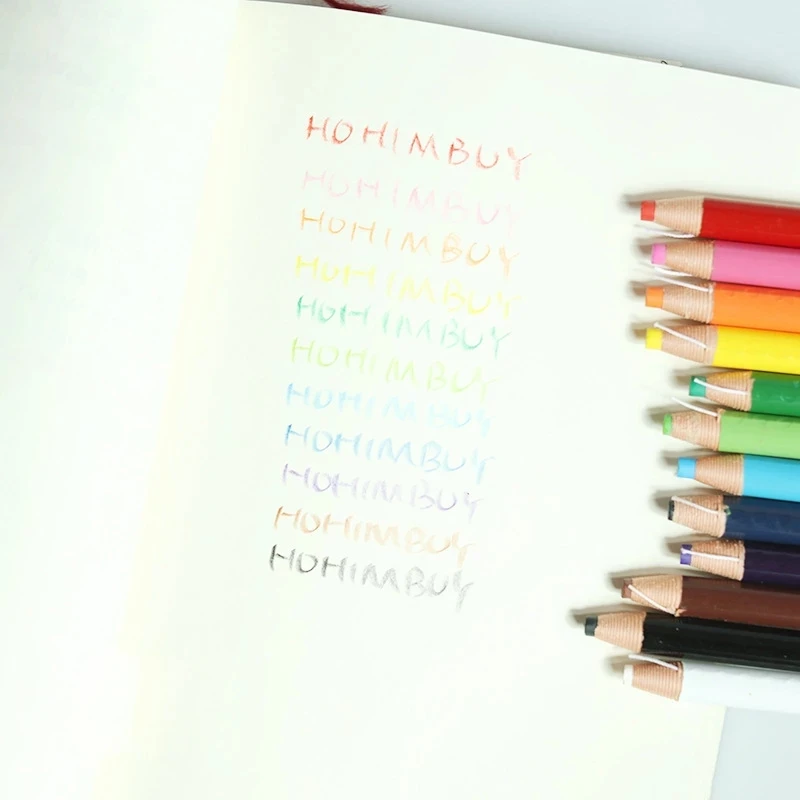 HOHIMBUY
HOHIMBUY
HOHIMBUY
HOHIMBUY
HOHIMBUY
HOHIMBUY
HOHIMBUY
HOHIMBUY
HOHIMBUY
HOHIMBUY
HOHIMBUY